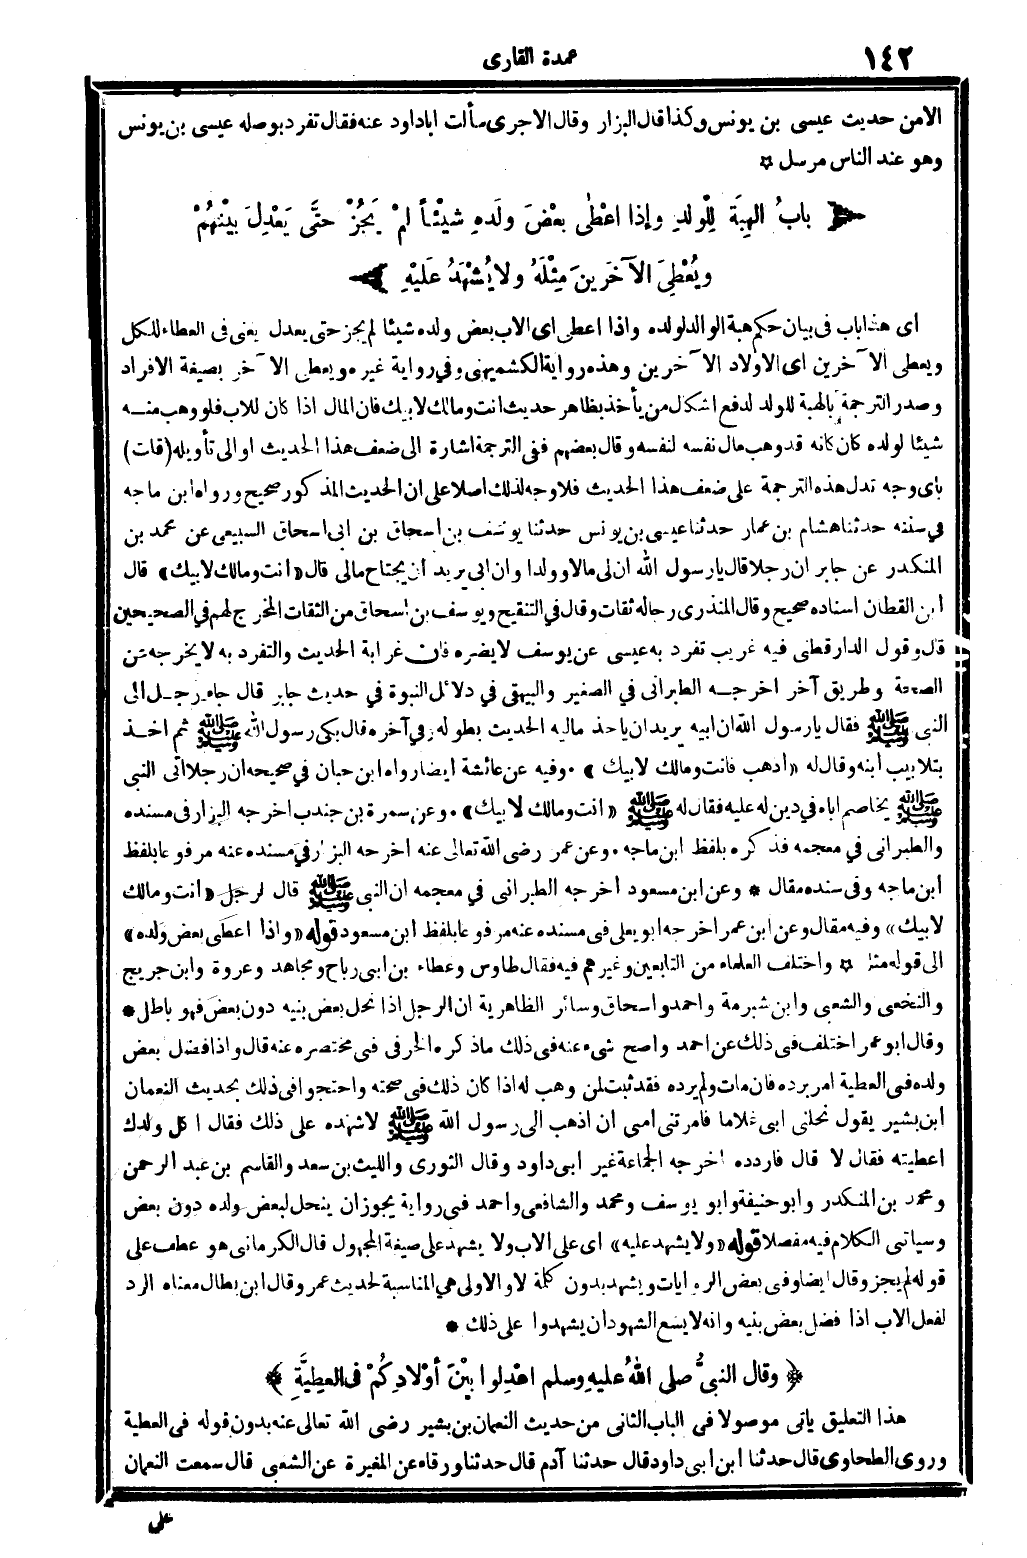 ١٤٢
عمدة القارى
الامن حديث عيسى بن يونس وكذا قال البزار وقال الاجرى سألت اباداود عنه فقال تفرد بوصله عيسى بن يونس
وهو عند الناس مرسل ۞
بابُ الهِبَةِ لِلْولدِ وإذا اعْطٰى بعْضَ ولَدِهِ شيْئاً لمْ يَجُزْ حتَّى يَعْدِلَ بيْنَهُمْ
ويُعْطِىَ الآخَرِينَ مِثْلَهُ ولا يُشْهَدُ عَلَيْهِ
اى هذا باب فى بيان حكم هبة الوالد لولده واذا اعطى اى الاب بعض ولده شيئا لم يجز حتى يعدل يعنى فى العطاء للكل
ويعطى الآخرين اى الاولاد الآخرين وهذه رواية الكشميهنى وفي رواية غيره ويعطى الآخر بصيغة الافراد
وصدر الترجمة بالهبة للولد لدفع اشكال من يأخذ بظاهر حديث انت ومالك لابيك فان المال اذا كان للاب فلو وهب منه
شيئا لولده كان كانه قد وهب مال نفسه لنفسه وقال بعضهم ففى الترجمة اشارة الى ضعف هذا الحديث او الى تأويله (قلت)
باى وجه تدل هذه الترجمة على ضعف هذا الحديث فلا وجه لذلك اصلا على ان الحديث المذكور صحيح ورواه ابن ماجه
في سننه حدثنا هشام بن عمار حدثنا عيسى بن يونس حدثنا يوسف بن اسحاق بن ابى اسحاق السبيعى عن محمد بن
المنكدر عن جابر ان رجلا قال يا رسول الله ان لى مالا وولدا وان ابى يريد أن يجتاح مالى قال «انت ومالك لابيك» قال
ابن القطان اسناده صحيح وقال المنذرى رجاله ثقات وقال في التنقيح ويوسف بن اسحاق من الثقات المخرج لهم في الصحيحين
قال وقول الدارقطنى فيه غريب تفرد به عيسى عن يوسف لا يضره فان غرابة الحديث والتفرد به لا يخرجه عن
الصحة وطريق آخر اخرجه الطبرانى في الصغير والبيهقى في دلائل النبوة في حديث جابر قال جاء رجل الى
النبى ﷺ فقال يارسول الله ان ابيه يريد ان ياخذ ماليه الحديث بطوله وفي آخره قال بكى رسول الله ﷺ ثم اخذ
بتلابيب ابنه وقال له «أذهب فانت ومالك لابيك» . وفيه عن عائشة ايضا رواه ابن حبان في صحيحه ان رجلا اتى النبى
ﷺ يخاصم اباه في دين له عليه فقال له ﷺ «انت ومالك لابيك» . وعن سمرة بن جندب اخرجه البزار فى مسنده
والطبرانى في معجمه فذكره بلفظ ابن ماجه . وعن عمر رضى الله تعالى عنه اخرجه البزار في مسنده عنه مرفوعا بلفظ
ابن ماجه وفى سنده مقال * وعن ابن مسعود أخرجه الطبرانى في معجمه ان النبى ﷺ قال لرجل «أنت ومالك
لابيك» وفيه مقال وعن ابن عمر اخرجه ابو يعلى فى مسنده عنه مرفوعا بلفظ ابن مسعود قوله «واذا اعطى بعض ولده»
الى قوله مثله ۞ واختلف العلماء من التابعين وغيرهم فيه فقال طاوس وعطاء بن ابى رباح ومجاهد وعروة وابن جريج
والنخعى والشعبى وابن شبرمة واحمد واسحاق وسائر الظاهرية ان الرجل اذا نحل بعض بنيه دون بعض فهو باطل *
وقال ابو عمر اختلف فى ذلك عن احمد واصح شىء عنه فى ذلك ماذكره الخرقى فى مختصره عنه قال واذا فضل بعض
ولده فى العطية امر برده فان مات ولم يرده فقد ثبت لمن وهب له اذا كان ذلك فى صحته واحتجوا فى ذلك بحديث النعمان
ابن بشير يقول نحلنى ابى غلاما فامرتنى امى ان اذهب الى رسول الله ﷺ لاشهده على ذلك فقال اكل ولدك
اعطيته فقال لا قال فاردده اخرجه الجماعة غير ابى داود وقال الثورى والليث بن سعد والقاسم بن عبد الرحمن
ومحمد بن المنكدر وابو حنيفة وابو يوسف ومحمد والشافعى واحمد فى رواية يجوز ان ينحل لبعض ولده دون بعض
وسياتى الكلام فيه مفصلا قوله «ولا يشهد عليه» اى على الاب ولا يشهد على صيغة المجهول قال الكرمانى هو عطف على
قوله لم يجز وقال ايضا وفى بعض الروايات ويشهد بدون كلمة لا والاولى هي المناسبة لحديث عمر وقال ابن بطال معناه الرد
لفعل الاب اذا فضل بعض بنيه وانه لا يسع الشهود ان يشهدوا على ذلك *
﴿ وقال النبىُّ صلى اللهُ عليهِ وسلم اعْدِلوا بيْنَ أوْلادِكُمْ فى العطِيَّةِ ﴾
هذا التعليق ياتى موصولا فى الباب الثانى من حديث النعمان بن بشير رضى الله تعالى عنه بدون قوله فى العطية
وروى الطحاوى قال حدثنا ابن ابى داود قال حدثنا آدم قال حدثنا ورقاء عن المغيرة عن الشعبى قال سمعت النعمان
على